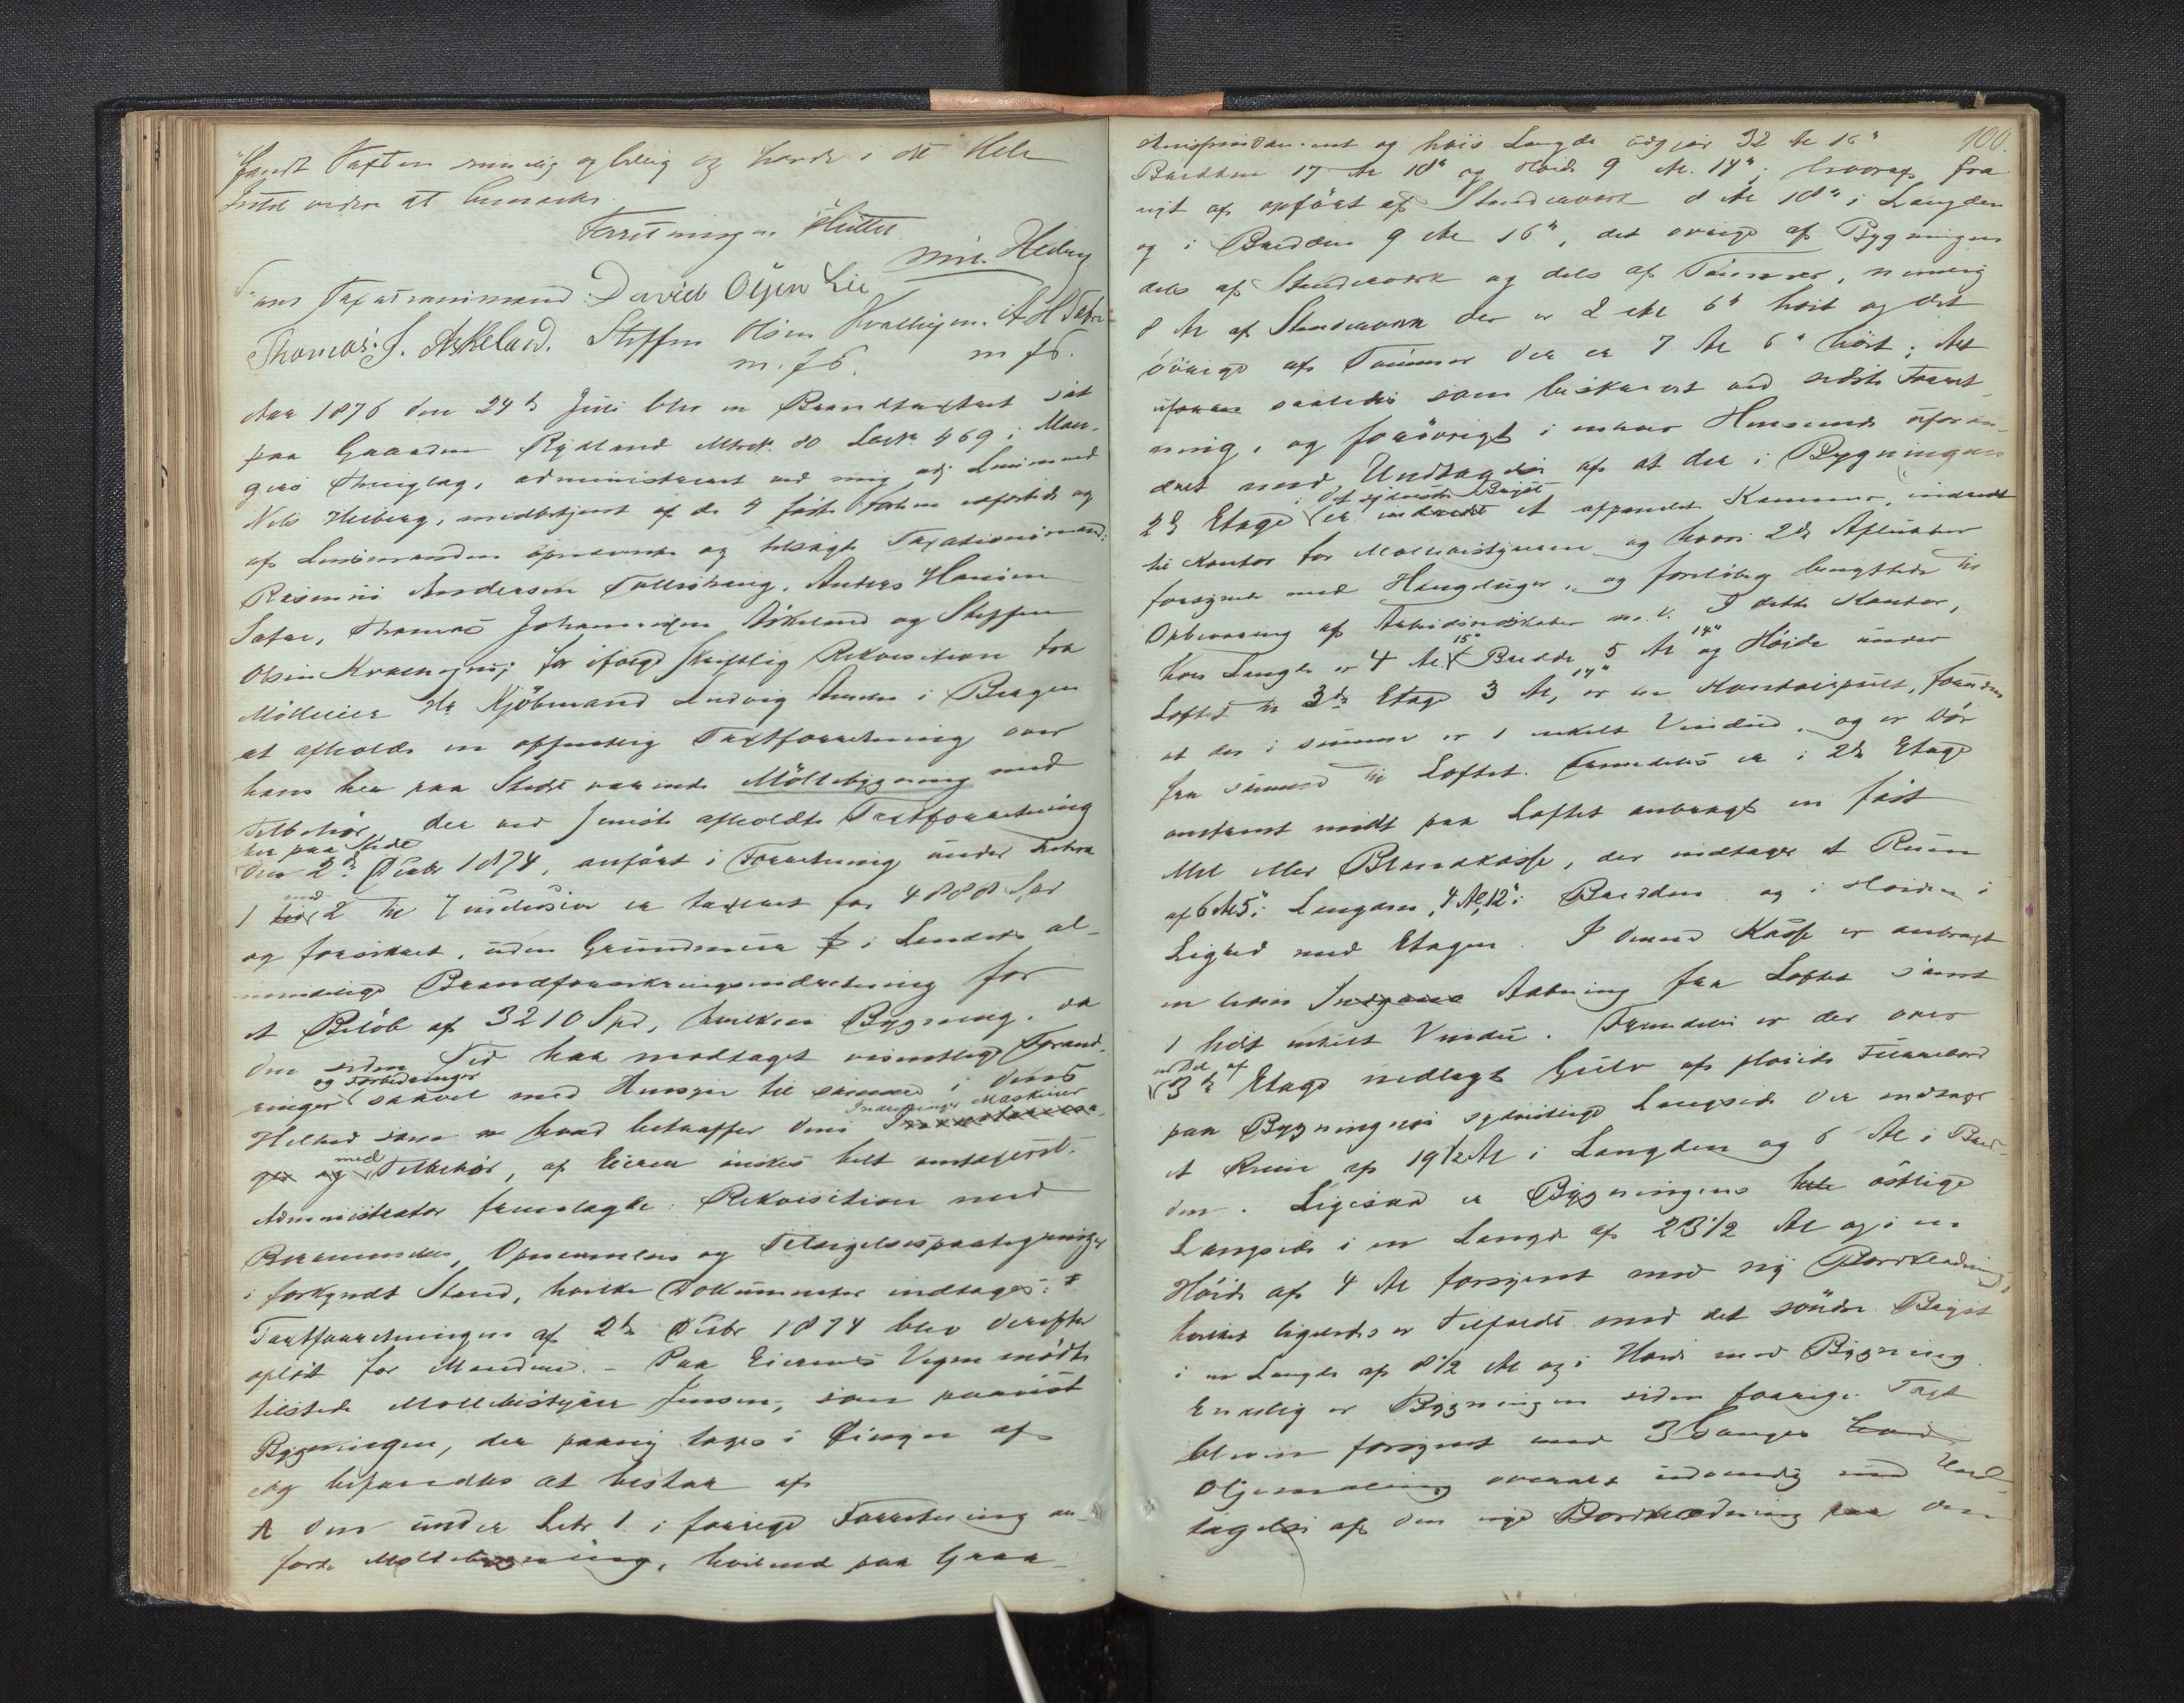 fandt Taxten rimelig og billig og havde i det Hele
Intet videre at bemærke.
Forretningen sluttet
Nils Heiberg
som Taxationsmænd: David Olsen Lie
Thomas J. Askeland. Steffen Olsen Kvalheim. A H Sætre
m. f. P. m f P.
Aar 1876 den 24de Juli blev en Brandtaxtret sat
paa Gaarden Rylland Matr. No 80 Løbn. 469 i Man-
gers Thinglag, administreret ved mig adj. Lensmand
Nils Heiberg, medbetjent af de 4 faste
af Lensmanden opnævnte og tilsagte Taxationsmænd:
Rasmus Andersen Anders Hansen
Sætre, Thomas Johannesen Askeland og Steffen
Olsen for ifølge skriftlig Rekvisition fra
Mølleeier Hr Kjøbmand Ludvig i Bergen
at afholde en offentlig Taxtforretning over
hans her paa Stedet værende Møllebygning med
Tilbehør, der ved seneste afholdte Taxtforretning
her paa Stedet
den 2den Oktbr 1874, anført i Forretning under Litra
med
1 2 til 7 inclusive er taxeret for 4888 Spd
og forsikret, uden Grundmur i Landets al-
mindelige Brandforsikringsindretning for
et Beløb af 3210 Spd, hvilken Bygning, da
den siden Tid har modtaget væsentlige Forand-
og Forbedringer
ringer saavel med Hensyn til samme i dens
Indretninger Maskiner
Helhed som hvad betræffer dens
med
og Tilbehør, af Eieren ønskes helt omtaxeret.
Administrator fremlagde: Rekvisition med
Berammelse, Opnævnelse og Tilsigelsespaategninger
i forkyndt Stand, hvilke Dokumenter indtages: #
Taxtforretningen af 2den Oktbr 1874 blev derefter
oplæst for Mændene. – Paa Eierens Vegne mødte
tilstede Møllebestyrer Jensen, som paaviste
Bygningen, der paany toges i Øiesyn af
og befandtes at bestaa af
A den under Litr 1 i forrige Forretning an-
førte Møllebygning, hvilende paa Graa-
100.
og hvis Længde udgjør 32 Al 16"
Bredden 17 Al 18" og Høide 9 Al. 14"; hvoraf fra
nyt af opført af Stenderværk 8 Al 18" i Længden
og i Bredden 9 Al 16", det øvrige af Bygningen
dels af Stenderværk og dels af Tømmer, nemlig
8 Al af Stenderværk der er 2 Al 6" høit og det
øvrige af Tømmer der er 7 Al 6" høit; Alt
saaledes som beskrevet ved sidste Forret-
ning, og forøvrigt i enhver Henseende uforan-
dret med Undtagelse af at der i Bygningens
i det sydvestre Hjørne
2den Etage er indredet et afpanelet Kammer, indredet
til Kontor for Møllebestyreren og hvori 2de Aflukker
forsynet med Hængsluger, og foreløbig benyttede til
Opbevaring af Arbeidsredskaber m. V. I dette Kontor,
15" 14"
hvis Længde er 4 Al. Bredde 5 Al og Høide under
14"
Loftet til 3die Etage 3 Al, er en Kontorpult, foruden
at der i samme er 1 enkelt Vindu, og er Dør
fra samme til Loftet. Fremdeles er i 2den Etage
omtrent midt paa Loftet anbragt en fast
Mel eller Blandkasse, der indtager et Rum
af 6 Al 5" i Længden, 4 Al, 12" i Bredden og i Høiden i
Lighed med Etagen. I denne Kasse er anbragt
en liden Aabning fra Loftet samt
1 helt enkelt Vindu. Fremdeles er der over
en Del af
3die Etage nedlagt Gulv af pløiede Furrebord
paa Bygningens sydvestlige Langside der indtager
et Rum af 19½ Al i Længden og 6 Al i Bred-
den. Ligesaa er Bygningens hele østlige
Langside i en Længde af 23½ Al og i en
Høide af 4 Al forsynet med ny Bordklædning,
hvilket ligeledes er Tilfældet med det søndre
i en Længde af 8½ Al og i Høide med Bygning.
Endelig er Bygningen siden forrige Taxt
bleven forsynet med 3 Ganges
Oljemaling overalt udvendig med Und-
tagelse af den nye Bordklædning paa den